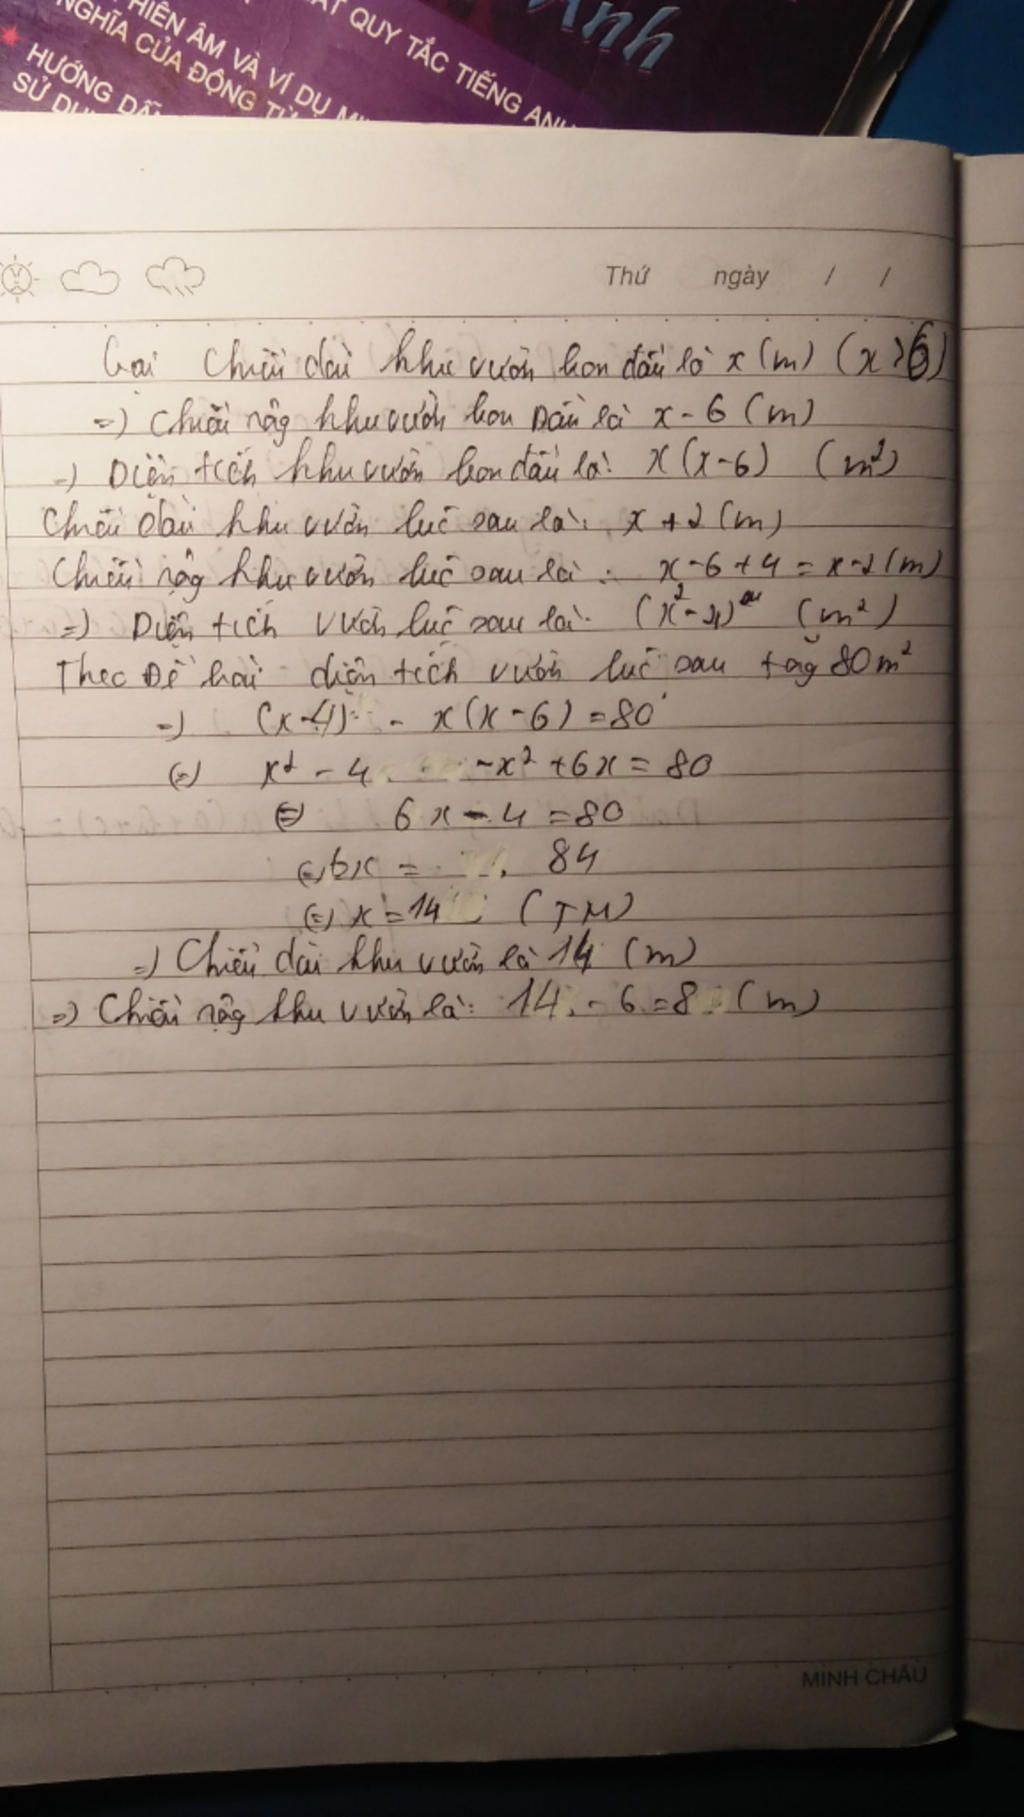 HIÊN ÂM VÀ VÍ DỤ
NGHĨA CỦA ĐỘNG TỪ
HƯỚNG DẪN
SỬ DỤ
QUY TẮC TIẾNG ANH
Anh
Thứ ngày / /
Gọi chiều dài khu vườn ban đầu là x (m) (x > 6)
=) Chiều rộng khu vườn ban đầu là x - 6 (m)
=) Diện tích khu vườn ban đầu là: x (x - 6) (m²)
Chiều dài khu vườn lúc sau là: x + 2 (m)
Chiều rộng khu vườn lúc sau là: x - 6 + 4 = x - 2 (m)
=) Diện tích vườn lúc sau là: (x² - 4) (m²)
Theo Đề bài diện tích vườn lúc sau tăng 80m²
=) (x - 4) - x (x - 6) = 80
(=) x² - 4 - x² + 6x = 80
(=) 6x - 4 = 80
(=) 6x = 84
(=) x = 14 (TM)
=) Chiều dài khu vườn là 14 (m)
=) Chiều rộng khu vườn là: 14 - 6 = 8 (m)
MINH CHÂU